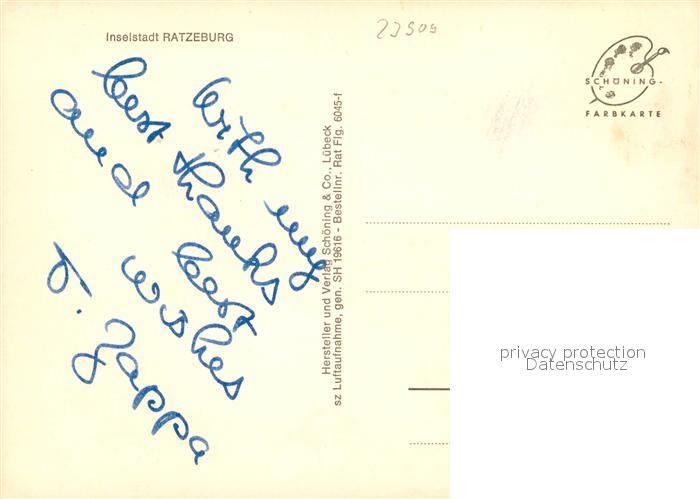 Inselstadt RATZEBURG
23909
SCHÖNING-
FARBKARTE
With my
best thanks
and best
wishes
F. Zappa
Hersteller und Verlag Schöning & Co., Lübeck
sz Luftaufnahme, gen. SH 19616 - Bestellnr. Rat Fig. 6045-f
privacy protection
Datenschutz